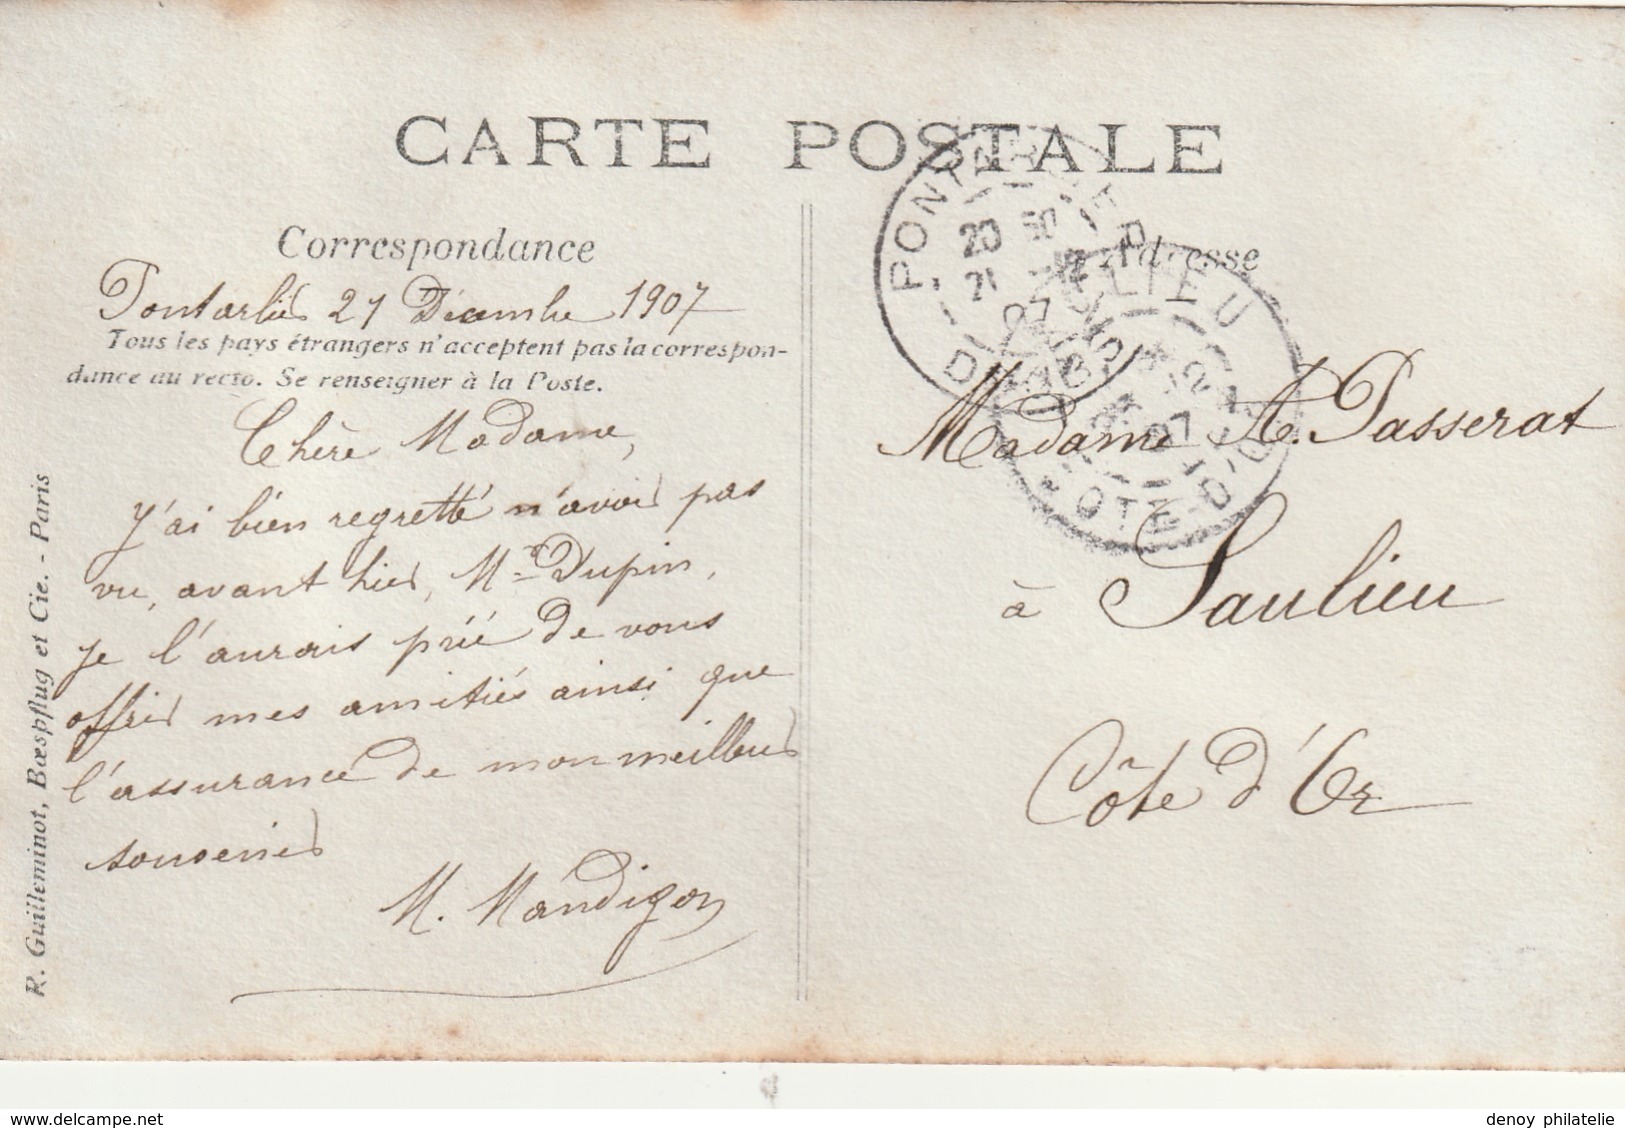 CARTE POSTALE
Correspondance
Pontarlier 21 Décembre 1907
Tous les pays étrangers n'acceptent pas la correspon-
dance au recto. Se renseigner à la Poste.
Chère Madame,
J'ai bien regretté n'avoir pas
vu, avant hier, Mr Dupin,
je l'aurais prié de vous
offrir mes amitiés ainsi que
l'assurance de mon meilleur
souvenir
M. Mandigon
R. Guilleminot, Bœspflug et Cie. - Paris
Adresse
PONTARLIER
DOUBS
20 50
21 12
07
SAULIEU
CÔTE-D'OR
07
Madame A. Passerat
à Saulieu
Côte d'Or
www.delcampe.net
denoy philatelie